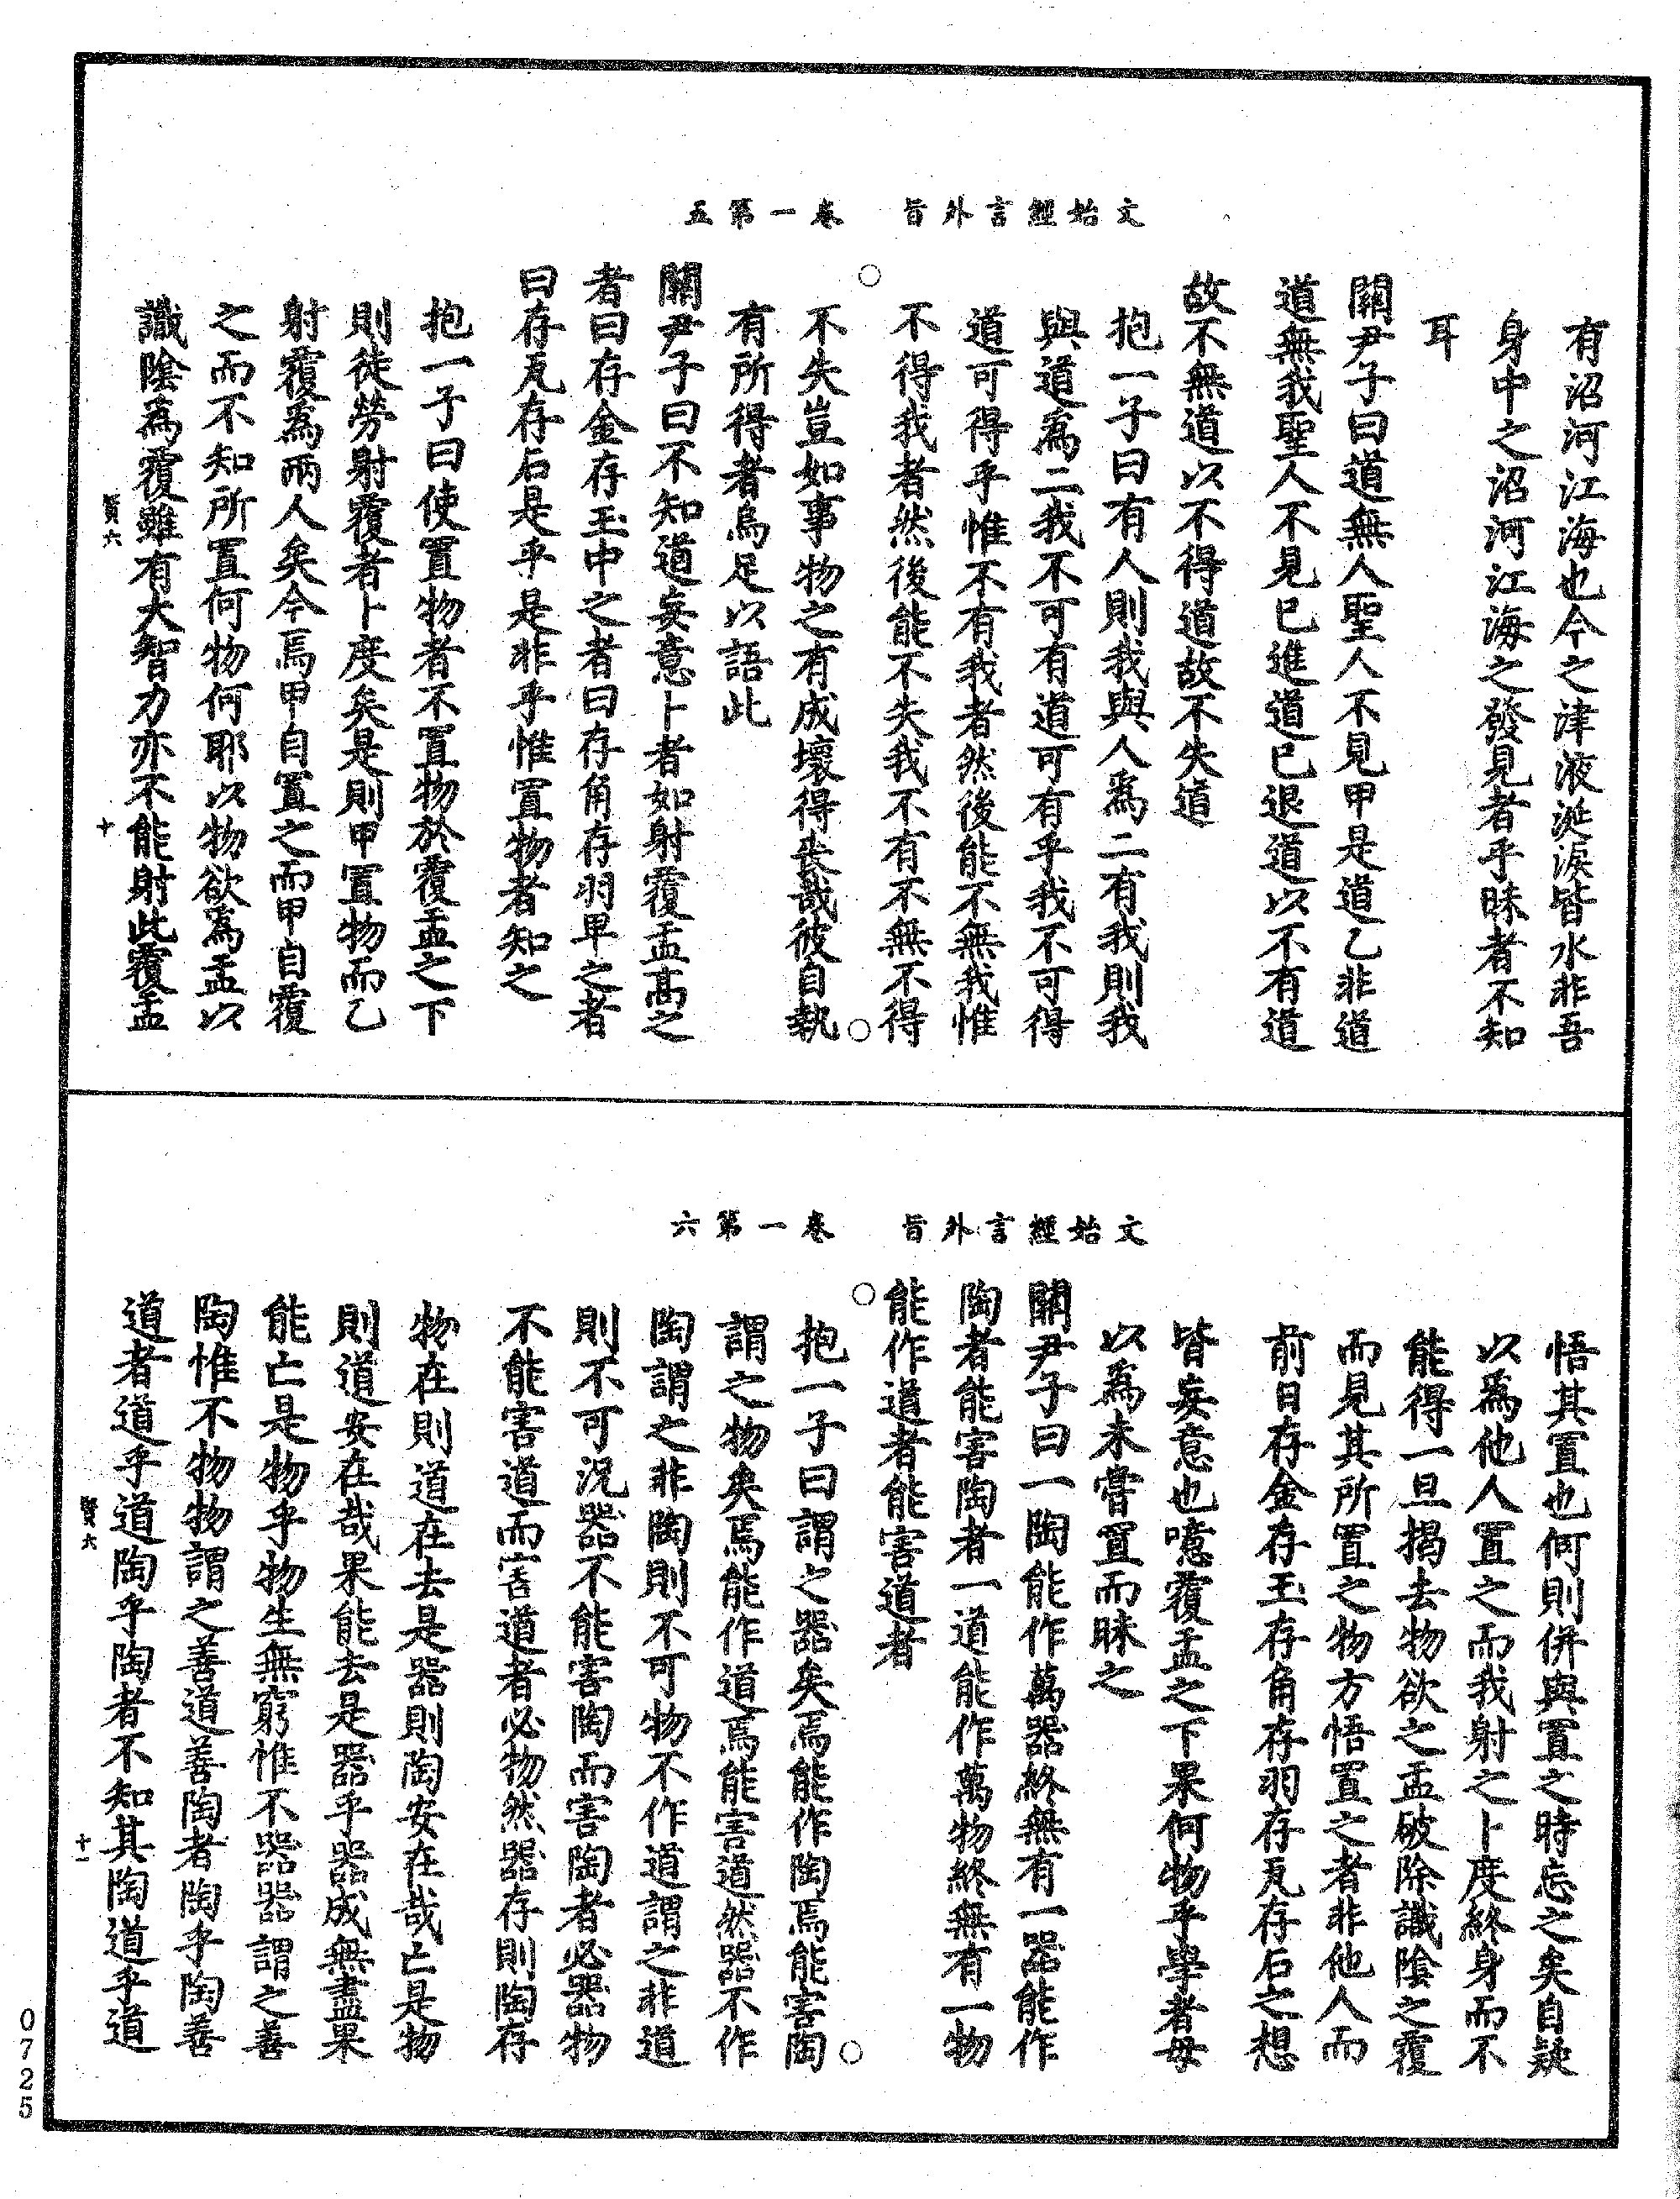 文始經言外旨　卷一第五
有沼河江海也今之津液涎淚皆水非吾
身中之沼河江海之發見者乎昧者不知
耳
關尹子曰道無人聖人不見甲是道乙非道
道無我聖人不見已進道已退道以不有道
故不無道以不得道故不失道
抱一子曰有人則我與人爲二有我則我
與道爲二我不可有道可有乎我不可得
道可得乎惟不有我者然後能不無我惟
不得我者然後能不失我不有不無不得
不失豈如事物之有成壞得丧哉彼自執
有所得者烏足以語此
關尹子曰不知道妄意卜者如射覆盂高之
者曰存金存玉中之者曰存角存羽卑之者
曰存瓦存石是乎是非乎惟置物者知之
抱一子曰使置物者不置物於覆盂之下
則徒勞射覆者卜度矣是則甲置物而乙
射覆爲兩人矣今焉甲自置之而甲自覆
之而不知所置何物何耶以物欲爲盂以
識陰爲覆雖有大智力亦不能射此覆盂
賢六　十
文始經言外旨　卷一第六
悟其置也何則併與置之時忘之矣自疑
以爲他人置之而我射之卜度終身而不
能得一旦揭去物欲之盂破除識陰之覆
而見其所置之物方悟置之者非他人而
前日存金存玉存角存羽存瓦存石之想
皆妄意也噫覆盂之下果何物乎學者毋
以爲未嘗置而昧之
關尹子曰一陶能作萬器終無有一器能作
陶者能害陶者一道能作萬物終無有一物
能作道者能害道者
抱一子曰謂之器矣焉能作陶焉能害陶
謂之物矣焉能作道焉能害道然器不作
陶謂之非陶則不可物不作道謂之非道
則不可況器不能害陶而害陶者必器物
不能害道而害道者必物然器存則陶存
物在則道在去是器則陶安在哉亡是物
則道安在哉果能去是器乎器成無盡果
能亡是物乎物生無窮惟不器器謂之善
陶惟不物物謂之善道善陶者陶乎陶善
道者道乎道陶乎陶者不知其陶道乎道
賢六　十一
0725